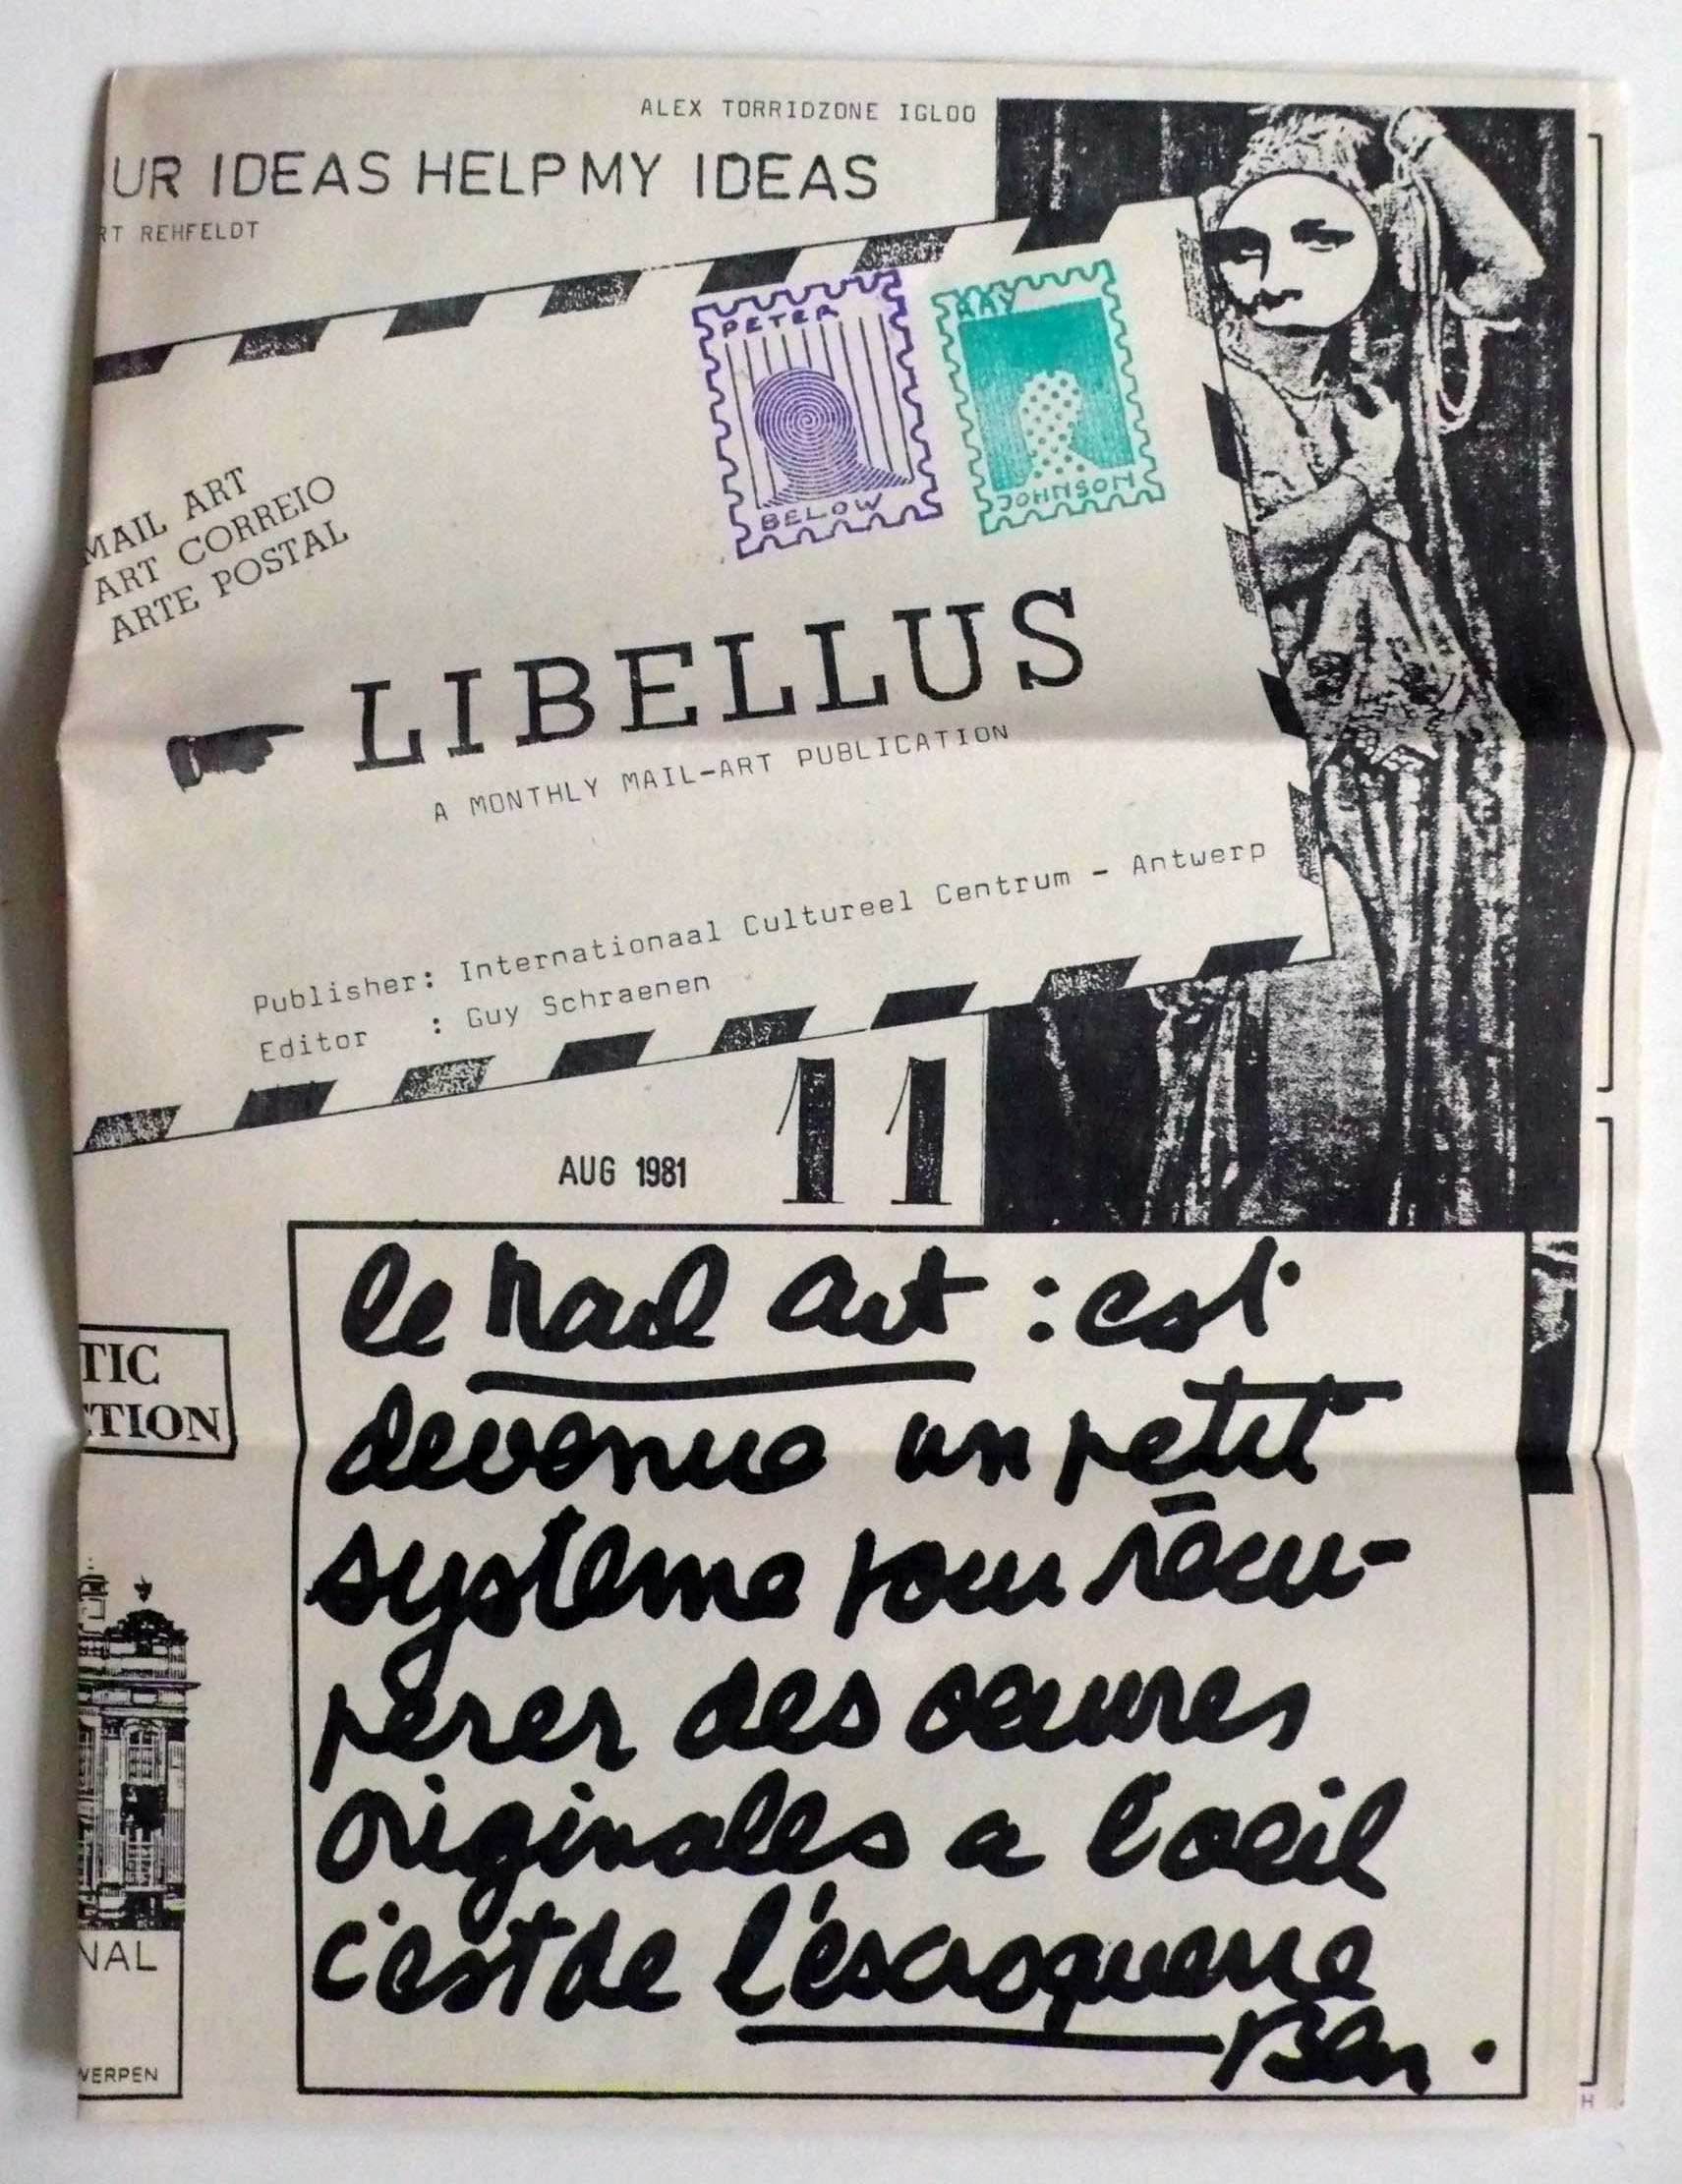 ALEX TORRIDZONE IGLOO
UR IDEAS HELP MY IDEAS
RT REHFELDT
PETER
BELOW
RAY
JOHNSON
MAIL ART
ART CORREIO
ARTE POSTAL
LIBELLUS
A MONTHLY MAIL-ART PUBLICATION
Publisher: Internationaal Cultureel Centrum - Antwerp
Editor : Guy Schraenen
11
AUG 1981
le Mail art : est
devenue un petit
système pour récu-
pérer des oeuvres
originales a l'oeil
c'est de l'éscroquerie
Ben.
TIC
CTION
NAL
WERPEN
H